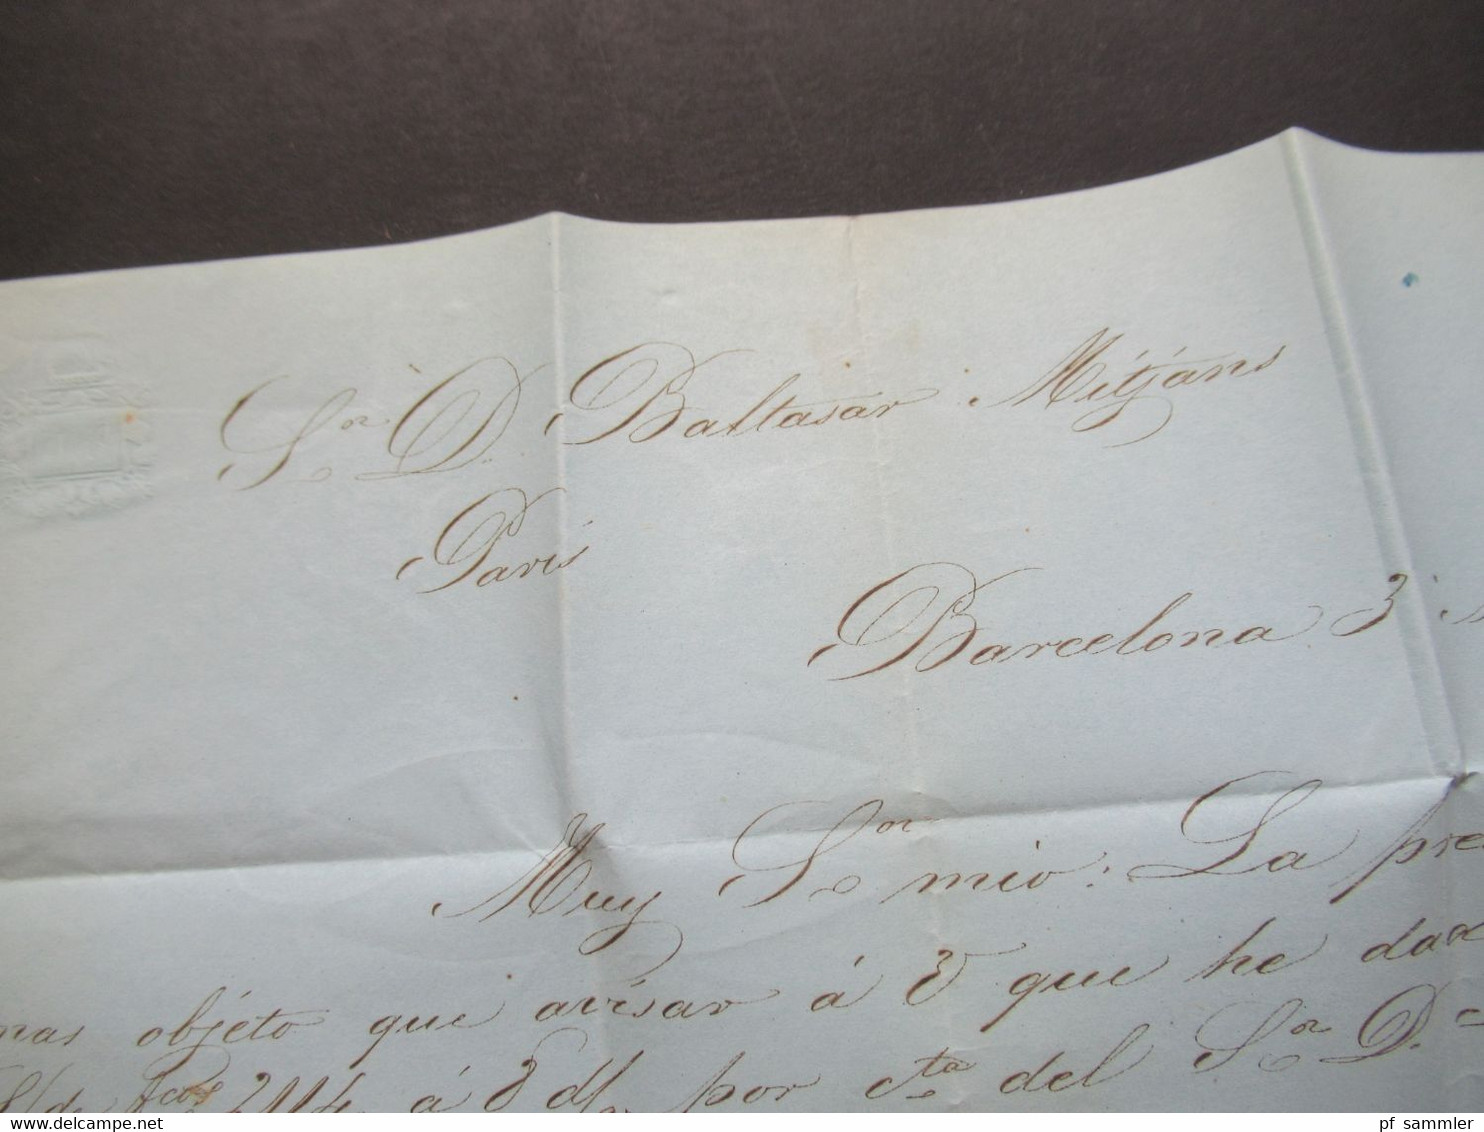 Sor D. Baltasar Mitjans
Paris
Barcelona 3
Muy Sor mio: La pre
mas objeto que avisar á V que he dad
fcos 2114 á 8 d/ por cta del Sor Dn
delcampe.net
pf sammler